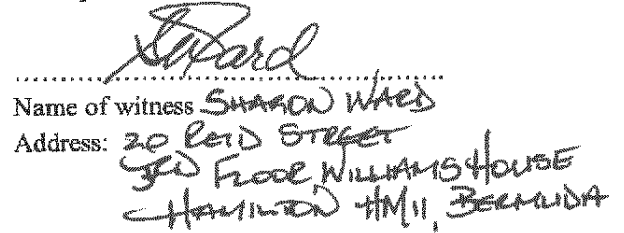 SWard
Name of witness SHARON WARD
Address: 20 REID STREET
3RD FLOOR WILLIAMS HOUSE
HAMILTON HM11, BERMUDA